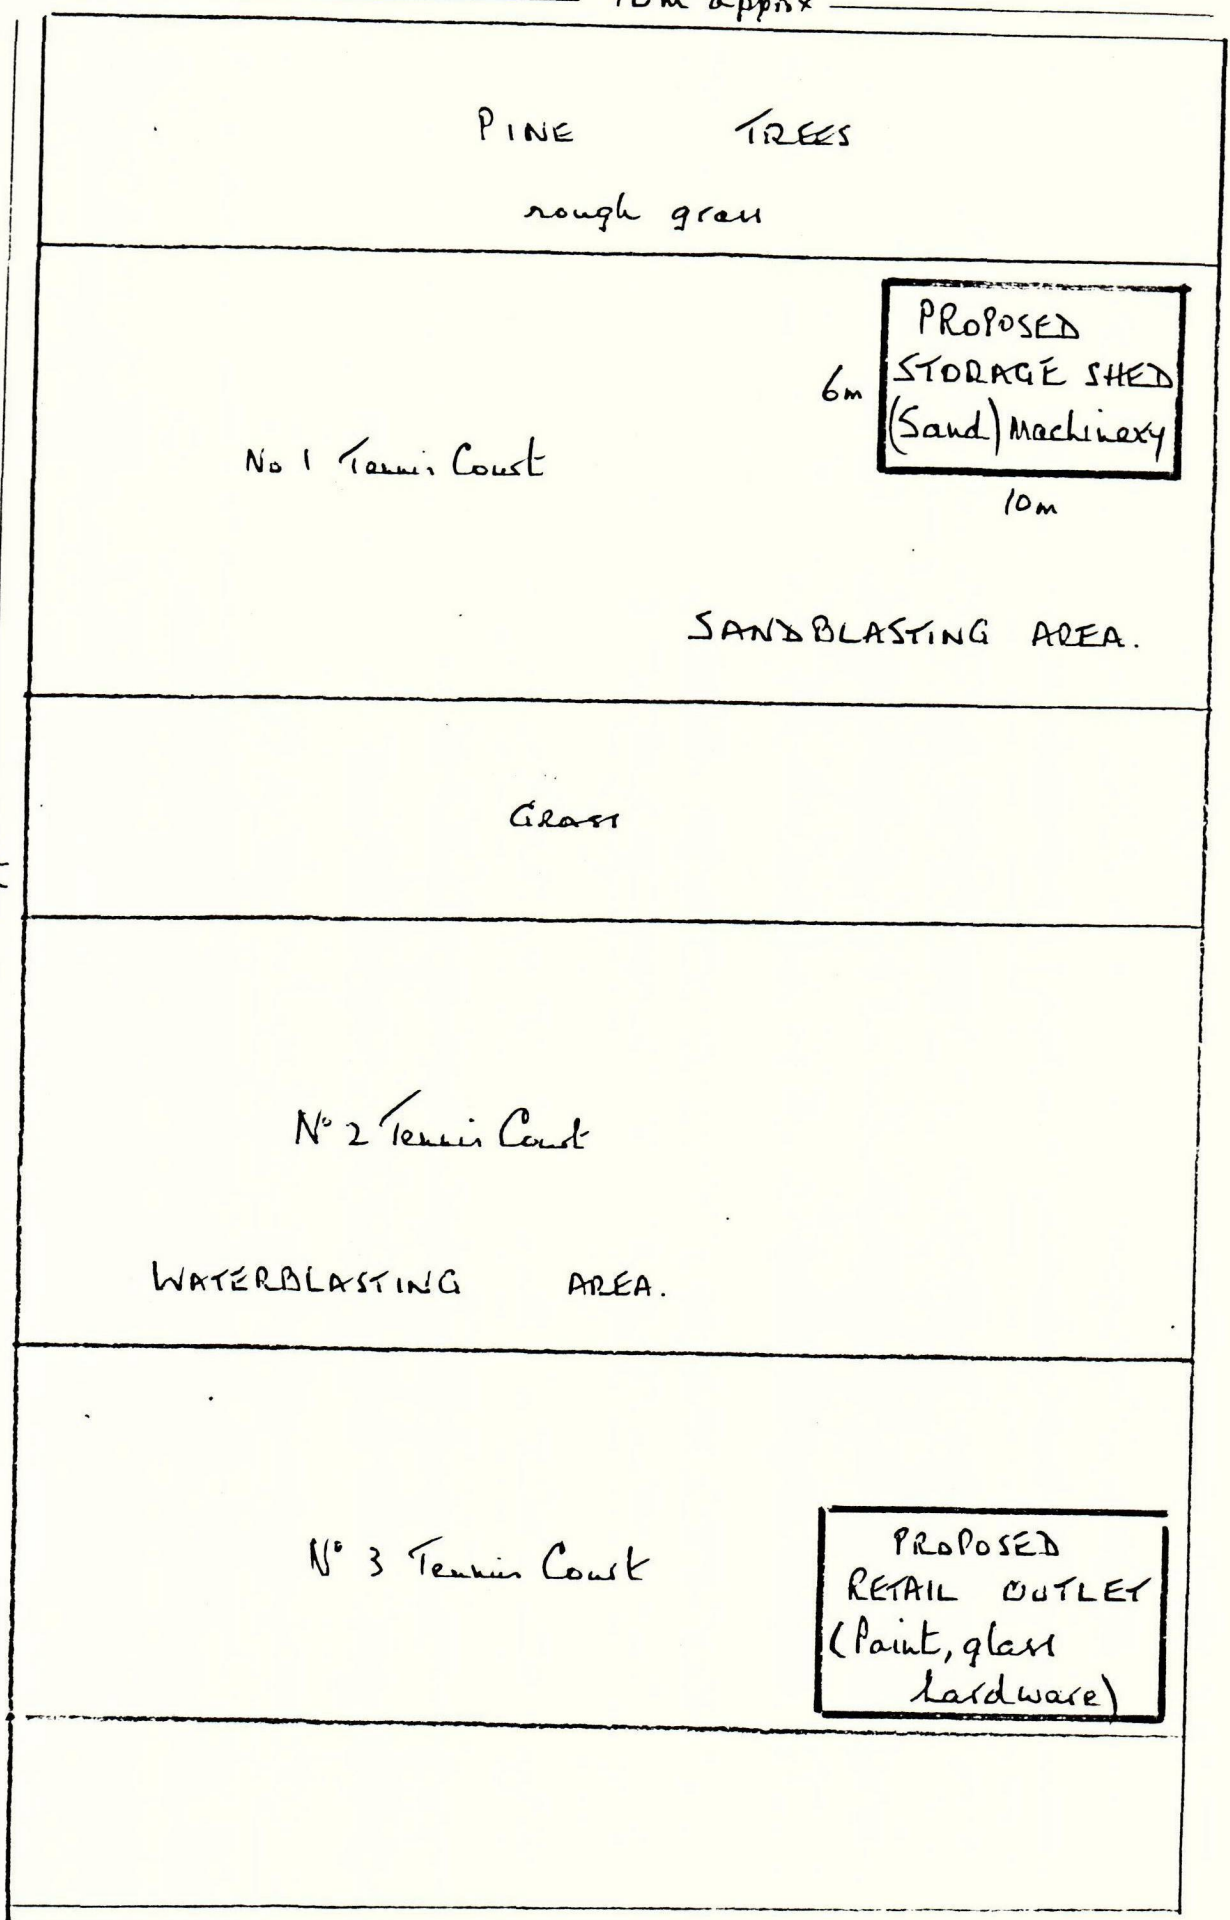 approx
PINE TREES
rough grass
PROPOSED
STORAGE SHED
(Sand) Machinery
6m
10m
No 1 Tennis Court
SANDBLASTING AREA.
GRASS
No 2 Tennis Court
WATERBLASTING AREA.
No 3 Tennis Court
PROPOSED
RETAIL OUTLET
(Paint, glass
hardware)